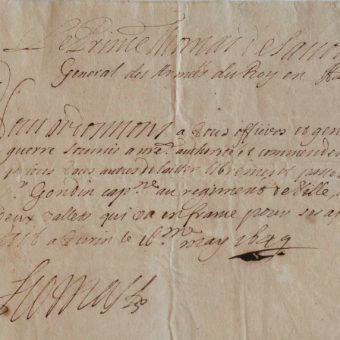 Le Prince Thomas de Savo
General des Armées du Roy en
Nous ordonnons a tous officiers et gens
guerre soumis a nre. authorité et commande
tous autres de laisser librement passe
Gondin cap.ne au regiment de Ville
deux valletz qui va en france pour ses
a Turin le 16.me may 1649
Thomas